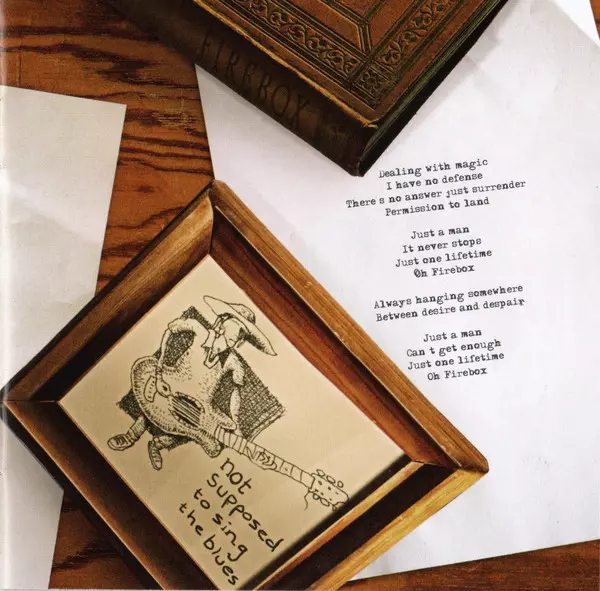 FIREBOX
Dealing with magic
I have no defense
There s no answer just surrender
Permission to land
Just a man
It never stops
Just one lifetime
Oh Firebox
Always hanging somewhere
Between desire and despair
Just a man
Can t get enough
Just one lifetime
Oh Firebox
not
supposed
to sing
the blues